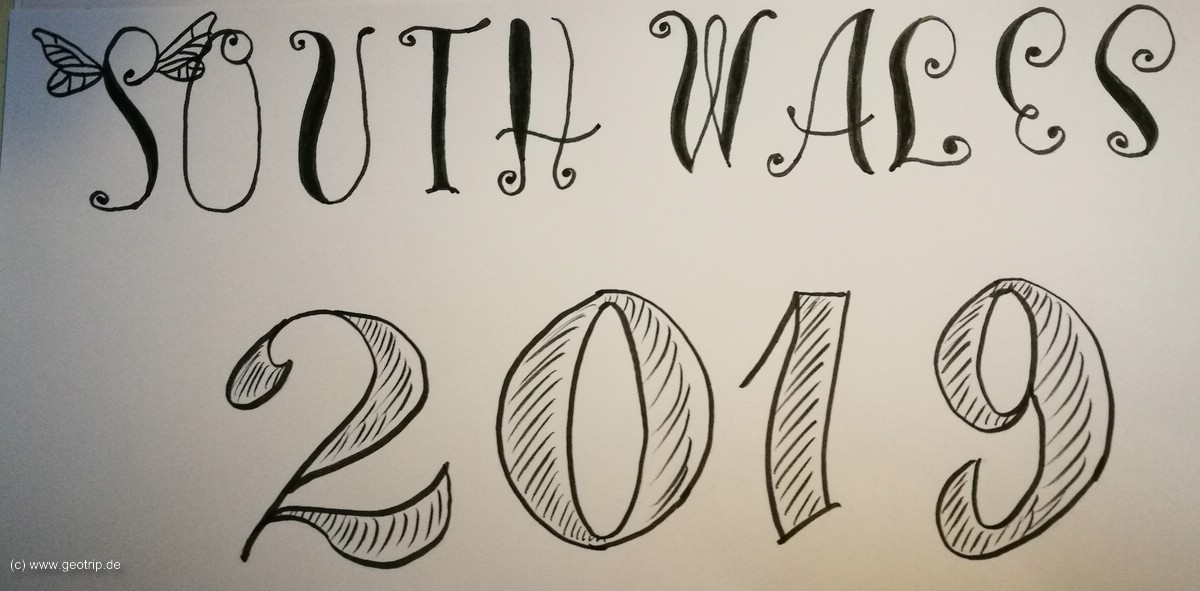 SOUTH WALES
2019
(c) www.geotrip.de